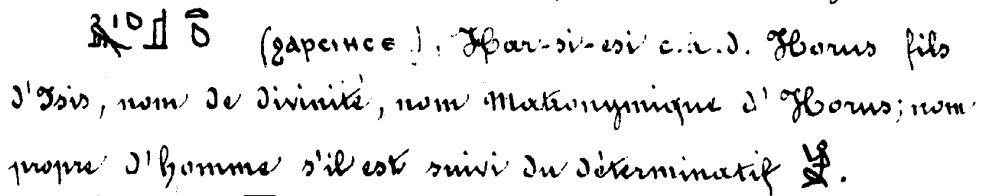 (ϩⲁⲣⲥⲓⲏⲥⲉ). Har-si-esi c.a.d. Horus fils
d'Isis, nom de divinité, nom Matronymique d'Horus; nom
propre d'homme s'il est suivi du déterminatif